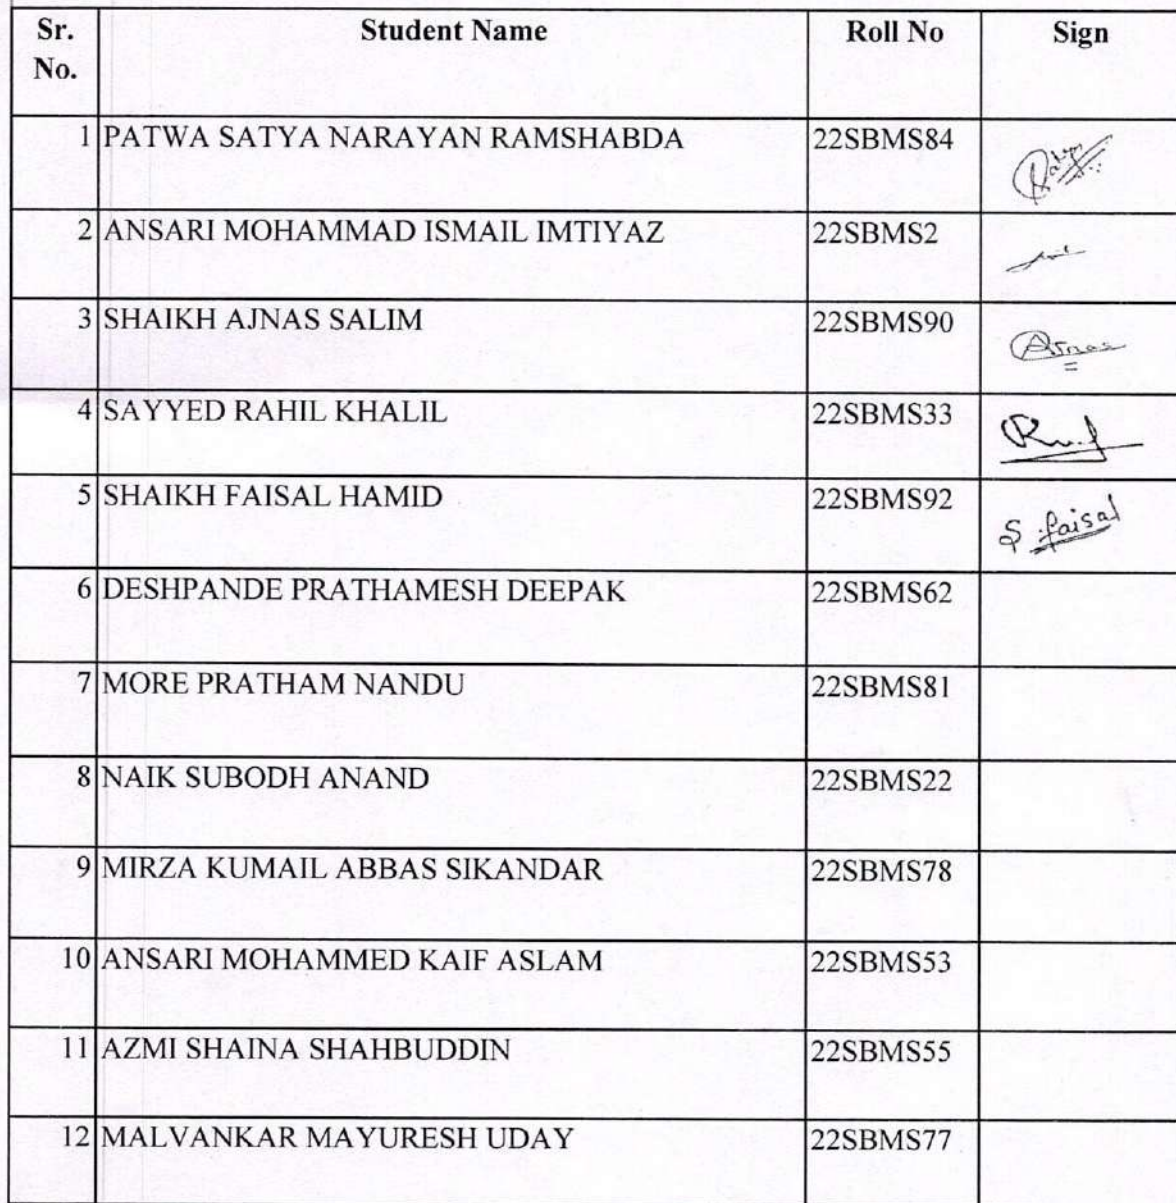 Sr. No. Student Name Roll No Sign
1 PATWA SATYA NARAYAN RAMSHABDA 22SBMS84
2 ANSARI MOHAMMAD ISMAIL IMTIYAZ 22SBMS2
3 SHAIKH AJNAS SALIM 22SBMS90 Ajnas
4 SAYYED RAHIL KHALIL 22SBMS33
5 SHAIKH FAISAL HAMID 22SBMS92 S faisal
6 DESHPANDE PRATHAMESH DEEPAK 22SBMS62
7 MORE PRATHAM NANDU 22SBMS81
8 NAIK SUBODH ANAND 22SBMS22
9 MIRZA KUMAIL ABBAS SIKANDAR 22SBMS78
10 ANSARI MOHAMMED KAIF ASLAM 22SBMS53
11 AZMI SHAINA SHAHBUDDIN 22SBMS55
12 MALVANKAR MAYURESH UDAY 22SBMS77